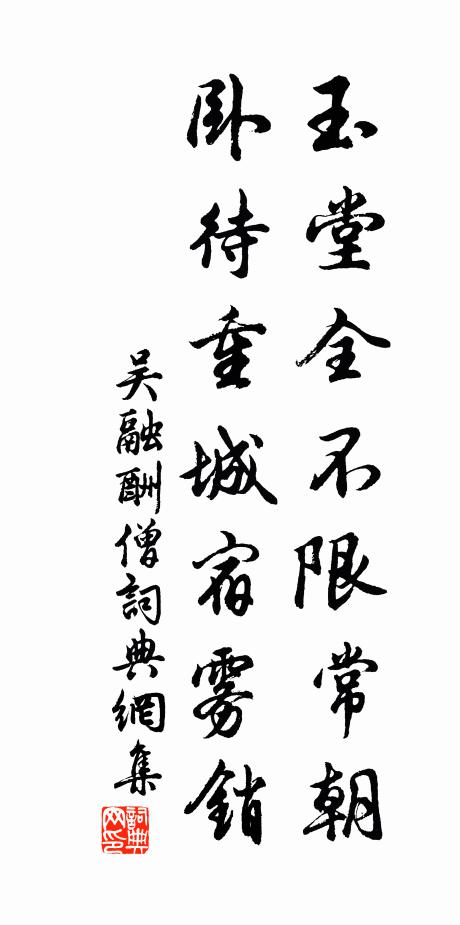 玉堂全不限常朝
卧待重城宿雾銷
吴融酬僧詞典網集
詞典网印